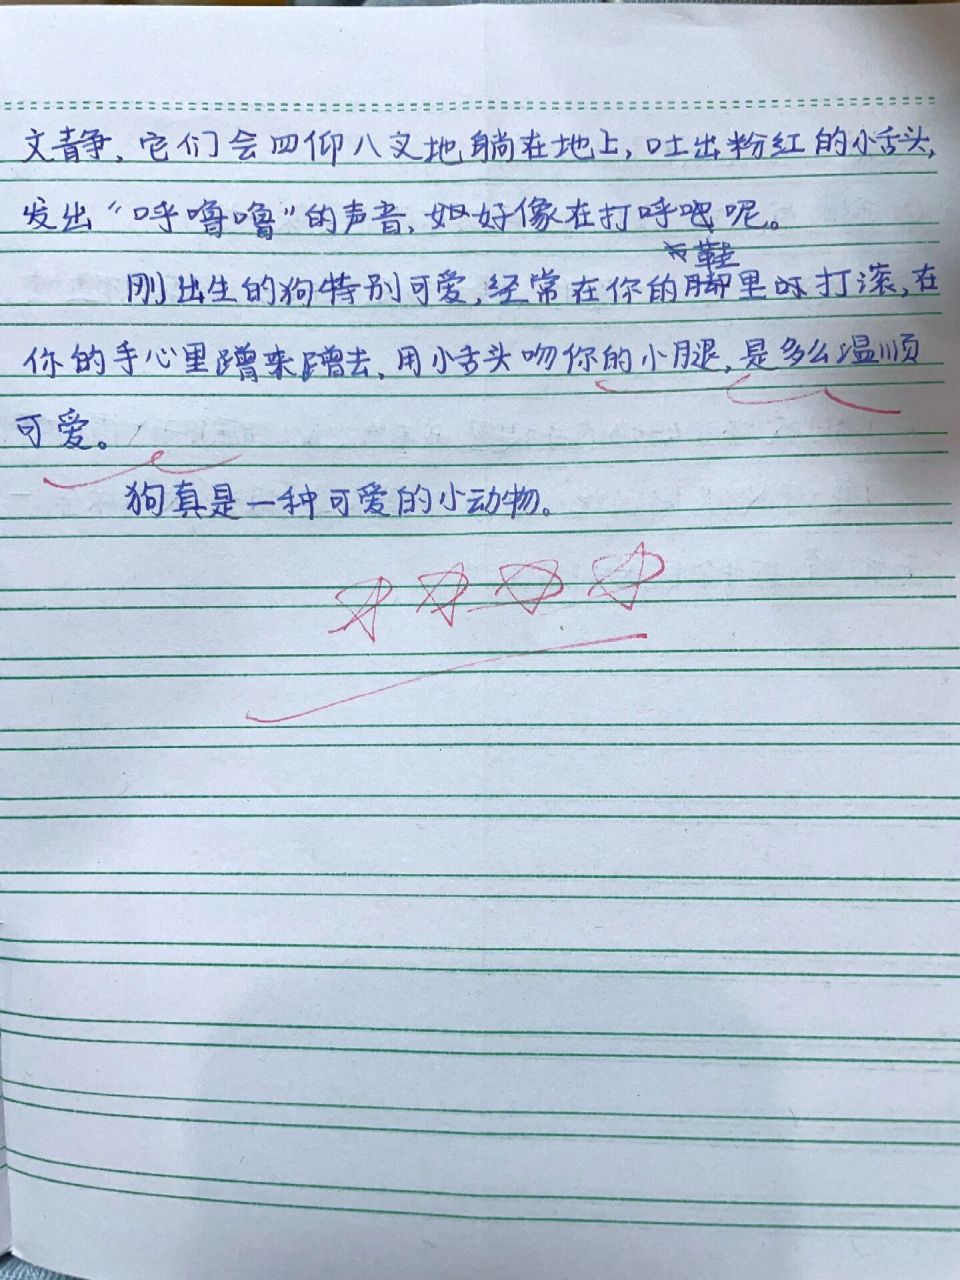 文静，它们会四仰八叉地躺在地上，吐出粉红的小舌头，
发出“呼噜噜”的声音，如好像在打呼吧呢。
鞋
刚出生的狗特别可爱，经常在你的脚里打滚，在
你的手心里蹭来蹭去，用小舌头吻你的小腿，是多么温顺
可爱。
狗真是一种可爱的小动物。